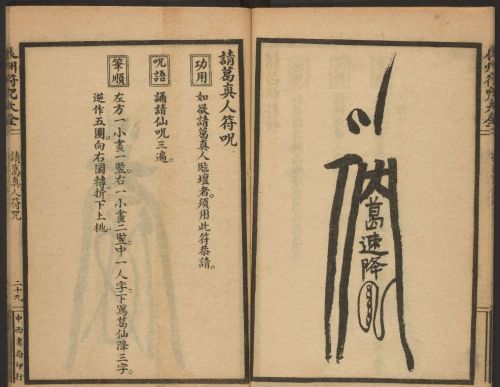 葛速降
請葛真人符呪
功用
如欲請葛真人臨壇者。須用此符恭請。
呪語
誦請仙呪三遍。
筆順
左方一小畫一豎。右一小畫二豎。中一人字。下寫葛仙降三字。
逆作五圈。向右圓轉折下上挑。
辰州符呪大全
請葛真人符呪
二十九
中西書局印行